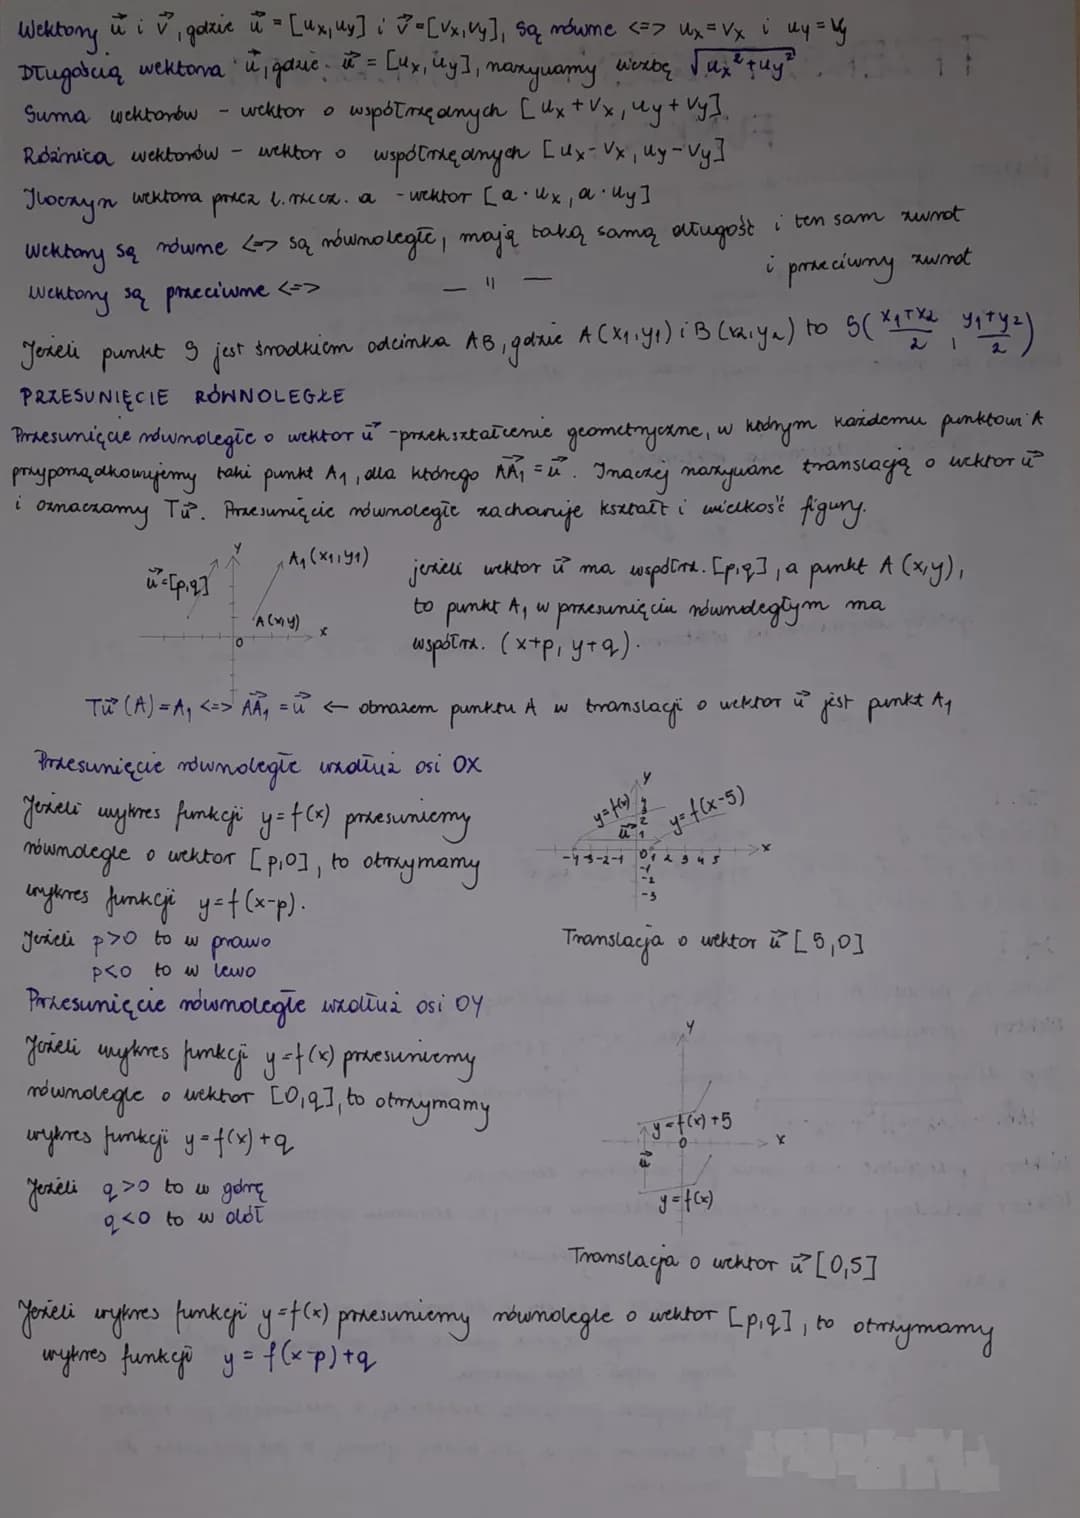 Wektory u⃗ i v⃗, gdzie u⃗ = [ux, uy] i v⃗ = [vx, vy], są równe <=> ux = vx i uy = vy
Długością wektora u⃗, gdzie u⃗ = [ux, uy], nazywamy liczbę √(ux² + uy²)
Suma wektorów - wektor o współrzędnych [ux + vx, uy + vy]
Różnica wektorów - wektor o współrzędnych [ux - vx, uy - vy]
Iloczyn wektora przez l. rzecz. a - wektor [a · ux, a · uy]
Wektory są równe <=> są równoległe, mają taką samą długość i ten sam zwrot
Wektory są przeciwne <=> — " — i przeciwny zwrot
Jeżeli punkt S jest środkiem odcinka AB, gdzie A(x₁, y₁) i B(x₂, y₂) to S((x₁+x₂)/2, (y₁+y₂)/2)
PRZESUNIĘCIE RÓWNOLEGŁE
Przesunięcie równoległe o wektor u⃗ - przekształcenie geometryczne, w którym każdemu punktowi A
przyporządkowujemy taki punkt A₁, dla którego AA₁⃗ = u⃗. Inaczej nazywane translacją o wektor u⃗
i oznaczamy Tu⃗. Przesunięcie równoległe zachowuje kształt i wielkość figury.
u⃗=[p,q]
y
A₁(x₁, y₁)
A(x,y)
x
0
jeżeli wektor u⃗ ma współrz. [p,q], a punkt A(x,y),
to punkt A₁ w przesunięciu równoległym ma
współrz. (x+p, y+q).
Tu⃗(A) = A₁ <=> AA₁⃗ = u⃗ ← obrazem punktu A w translacji o wektor u⃗ jest punkt A₁
Przesunięcie równoległe wzdłuż osi OX
Jeżeli wykres funkcji y=f(x) przesuniemy
równolegle o wektor [p,0], to otrzymamy
wykres funkcji y=f(x-p).
Jeżeli p>0 to w prawo
p<0 to w lewo
y
y=f(x)
y=f(x-5)
u⃗
4
3
2
1
-4 -3 -2 -1 0 1 2 3 4 5
x
-1
-2
-3
Translacja o wektor u⃗ [5,0]
Przesunięcie równoległe wzdłuż osi OY
Jeżeli wykres funkcji y=f(x) przesuniemy
równolegle o wektor [0,q], to otrzymamy
wykres funkcji y=f(x)+q
Jeżeli q>0 to w górę
q<0 to w dół
y
y=f(x)+5
0
x
u⃗
y=f(x)
Translacja o wektor u⃗ [0,5]
Jeżeli wykres funkcji y=f(x) przesuniemy równolegle o wektor [p,q], to otrzymamy
wykres funkcji y = f(x-p)+q